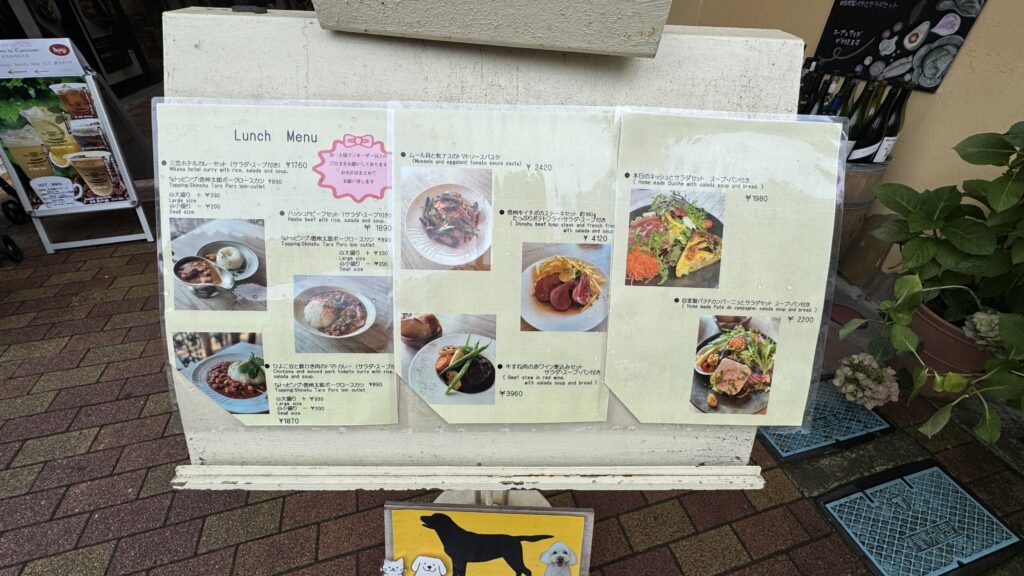 Lunch Menu
お一人様ワンオーダー以上の
ご注文をお願いしております
お会計はまとめて
お願い致します
● 三笠ホテルカレーセット（サラダ・スープ付き） ￥1760
Mikasa hotel curry with rice, salada and soup.
トッピング:信州太郎ポークロースカツ ￥890
Topping:Shinshu Taro Porc loin cutlet
大盛り + ￥330
Large size
小盛り - ￥200
Small size
● ハッシュドビーフセット（サラダ・スープ付き）
Hashe beef with rice, salada and soup.
￥1890
トッピング:信州太郎ポークロースカツ ￥890
Topping:Shinshu Taro Porc loin cutlet
大盛り + ￥330
Large size
小盛り - ￥200
Small size
● ひよこ豆と豚ひき肉のトマトカレー（サラダ・スープ付き）
Chickpea and minced pork tomato curry with rice,
salada and soup.
トッピング:信州太郎ポークロースカツ ￥890
Topping:Shinshu Taro Porc loin cutlet
大盛り + ￥330
Large size
小盛り - ￥200
Small size
￥1870
● ムール貝と秋ナスのトマトソースパスタ
(Mussels and eggplant tomato sauce pasta)
￥2420
● 信州牛イチボのステーキセット 約180g
たっぷりポテトフライ・サラダ・スープ・パン付き
( Shinshu beef lump steak and french fries
with salada and soup and bread )
￥4120
● 牛すね肉の赤ワイン煮込みセット
サラダ・スープ・パン付き
( Beef stew in red wine,
with salada soup and bread )
￥3960
● 本日のキッシュとサラダセット スープ・パン付き
( Home made Quiche with salada soup and bread, )
￥1980
● 自家製パテドカンパーニュとサラダセット スープ・パン付き
( Home made Pate de campagne, salada soup and bread, )
￥2200